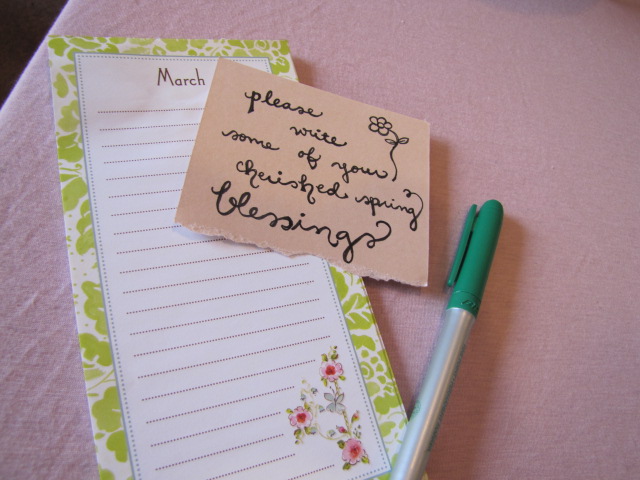 March
please
write
some of your
cherished spring
blessings